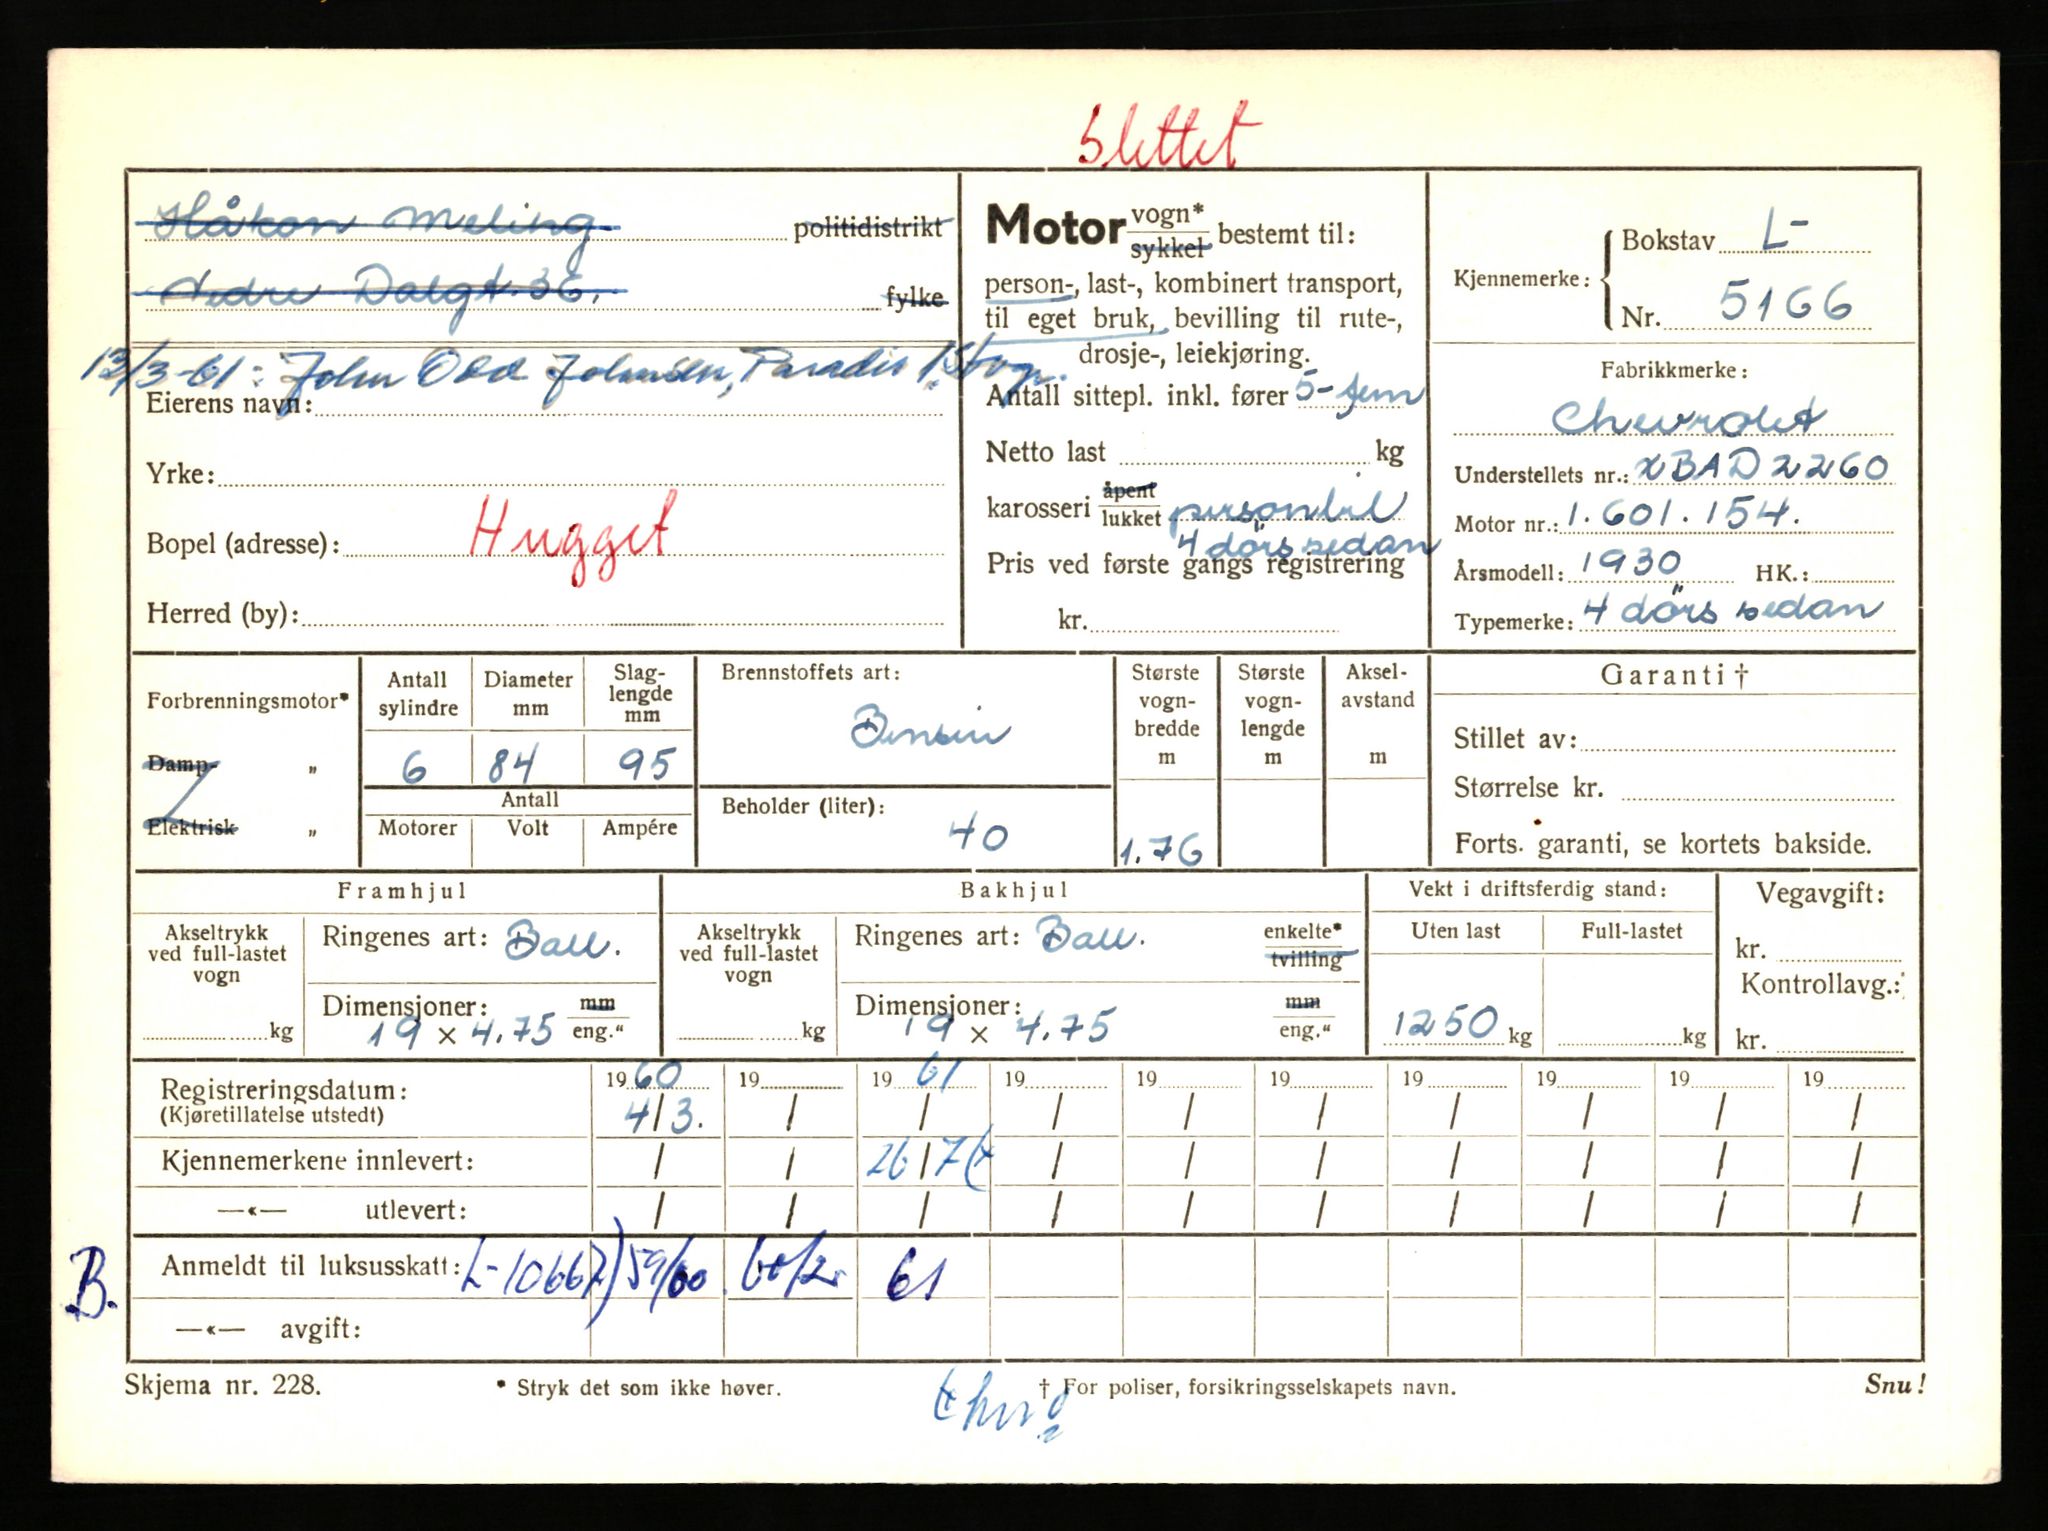 Slettet
Håkon Meling politidistrikt
Nedre Dalgt. 36. fylke
13/3-61: John Odd Johnsen, Paradis 1, Stvgr.
Eierens navn:
Yrke:
Bopel (adresse): Hugget
Herred (by):
Motor vogn* sykkel bestemt til:
person-, last-, kombinert transport,
til eget bruk, bevilling til rute-,
drosje-, leiekjøring.
Antall sittepl. inkl. fører 5- fem
Netto last kg
karosseri åpent lukket personbil
4 dörs sedan
Pris ved første gangs registrering
kr.
Kjennemerke: Bokstav L-
Nr. 5166
Fabrikkmerke:
Chevrolet
Understellets nr.: XBAD2260
Motor nr.: 1.601.154.
Årsmodell: 1930 HK.:
Typemerke: 4 dörs sedan
Forbrenningsmotor*
Damp- "
Elektrisk "
Antall sylindre
Diameter mm
Slaglengde mm
6 84 95
Antall
Motorer Volt Ampére
Brennstoffets art:
Bensin
Beholder (liter):
40
Største vognbredde m
1.76
Største vognlengde m
Akselavstand m
Garanti †
Stillet av:
Størrelse kr.
Forts. garanti, se kortets bakside.
Framhjul
Akseltrykk ved full-lastet vogn
kg
Ringenes art: Ball.
Dimensjoner: mm
19 x 4.75 eng."
Bakhjul
Akseltrykk ved full-lastet vogn
kg
Ringenes art: Ball. enkelte* tvilling
Dimensjoner: mm
19 x 4.75 eng."
Vekt i driftsferdig stand:
Uten last Full-lastet
1250 kg kg
Vegavgift:
kr.
Kontrollavg.:
kr.
Registreringsdatum: 1960 19 1961 19 19 19 19 19 19 19
(Kjøretillatelse utstedt) 4/3. / / / / / / / / /
Kjennemerkene innlevert: / / 26/7 / / / / / / /
—«— utlevert: / / / / / / / / / /
B. Anmeldt til luksusskatt: L-10667) 59/60 60/2 61
—«— avgift:
Skjema nr. 228. * Stryk det som ikke høver. † For poliser, forsikringsselskapets navn. Snu!